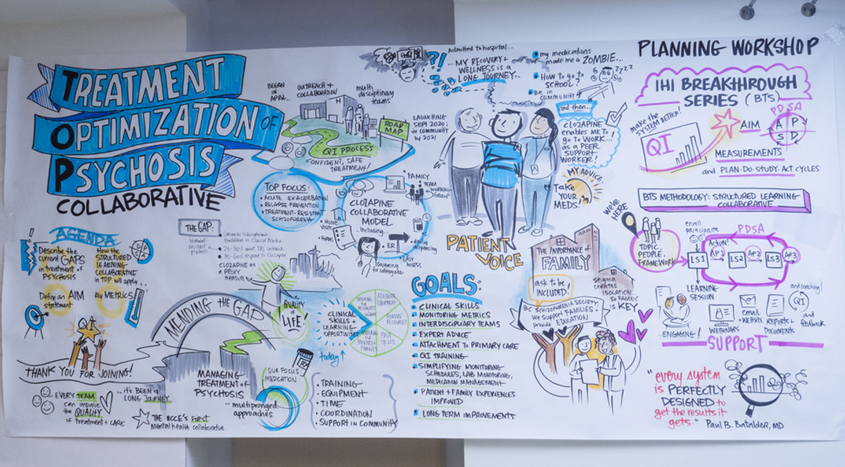 TREATMENT
OPTIMIZATION OF
PSYCHOSIS
COLLABORATIVE
AGENDA
Describe the
current GAPS
in treatment of
PSYCHOSIS
How the
STRUCTURED
LEARNING
COLLABORATIVE
in TOP will apply
Define an AIM
statement
Key METRICS
THANK YOU FOR JOINING!
EVERY TEAM
can improve
the QUALITY
of treatment + CARE
...it's BEEN a
LONG JOURNEY
THE BCCE'S FIRST
Mental health collaborative
BEGAN
in
APRIL
OUTREACH +
COLLABORATION
multi
disciplinary
teams
ROAD
MAP
QI PROCESS
CONFIDENT, SAFE
TREATMENT!
TOP FOCUS:
ACUTE EXACERBATION
RELAPSE PREVENTION
TREATMENT-RESISTANT
SCHIZOPHRENIA
THE GAP:
CLOZAPINE
COLLABORATIVE
MODEL
Including...
FAMILY
TEAM
ER
MENDING THE GAP
QUALITY
of
LIFE!
CLINICAL
SKILLS +
LEARNING
OPPORTUNITIES
today
MANAGING
TREATMENT OF
PSYCHOSIS
...multipronged
approaches
OUR FOCUS
MEDICATION
TRAINING
EQUIPMENT
TIME
COORDINATION
SUPPORT in COMMUNITY
Admitted to hospital...
...MY RECOVERY +
WELLNESS is a
LONG JOURNEY...
SEPT 2020:
in COMMUNITY
by 2021
my medications
made me a ZOMBIE...
How to go to
SCHOOL?
Be in COMMUNITY?
And then...
CLOZAPINE
enables ME to
GO to WORK...
as a PEER
SUPPORT
WORKER!
MY ADVICE
TAKE
YOUR
MEDS!
PATIENT
VOICE
GOALS:
CLINICAL SKILLS
MONITORING METRICS
INTERDISCIPLINARY TEAMS
EXPERT ADVICE
ATTACHMENT to PRIMARY CARE
QI TRAINING
SIMPLIFYING MONITORING-
SCHEDULES, LAB MONITORING,
MEDICATION MANAGEMENT
PATIENT + FAMILY EXPERIENCES
IMPROVED
LONG TERM IMPROVEMENTS
The IMPORTANCE of
FAMILY
ask to be
INCLUDED!
stigma
creates
ISOLATION
so FAMILY
is KEY
BC SCHIZOPHRENIA SOCIETY:
WE SUPPORT FAMILIES +
provide EDUCATION
PLANNING WORKSHOP
IHI BREAKTHROUGH
SERIES (BTS)
make the
SYSTEM BETTER!
QI
AIM
PDSA
A P
S D
MEASUREMENTS
and PLAN-DO-STUDY-ACT CYCLES
BTS METHODOLOGY: STRUCTURED LEARNING
COLLABORATIVE
We're HERE!
TOPIC,
PEOPLE,
FRAMEWORK
PDSA
Action!
LS1
AP1
LS2
AP2
LS3
AP3
LEARNING
SESSION
ENGAGING!
WEBINARS
REPORTS +
DOCUMENTS
and coaching
QI
and feedback
SUPPORT
"every system
is PERFECTLY
DESIGNED to
get the results it
gets."
Paul B. Batalder, MD